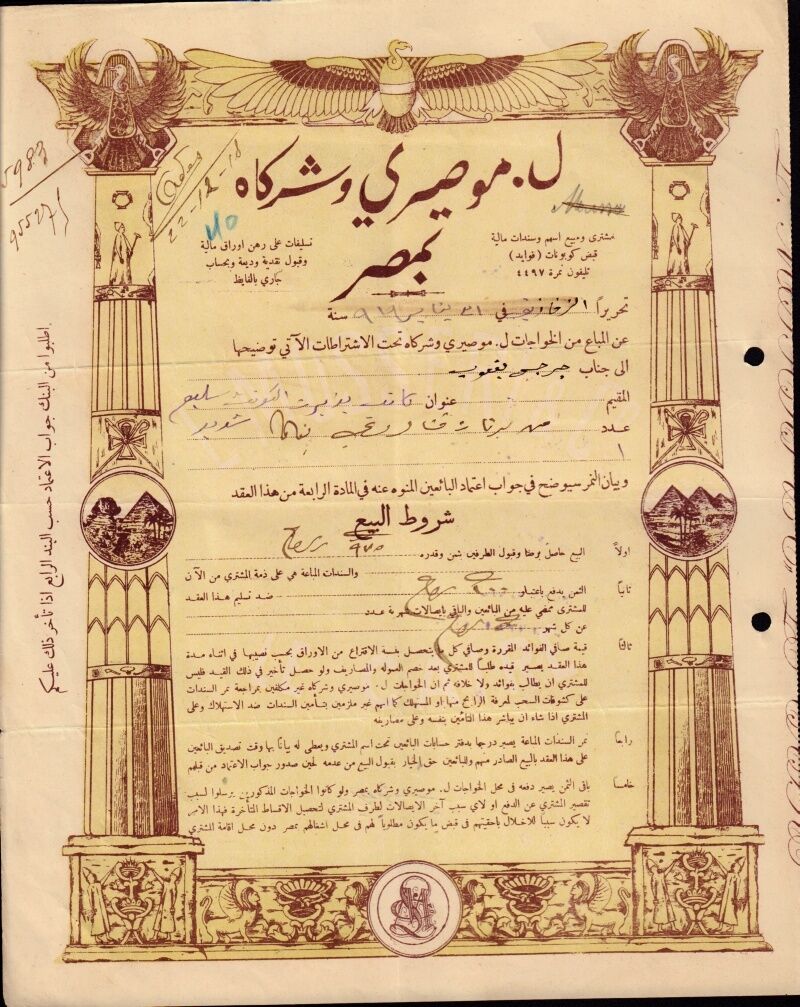 ل. موصيري وشركاه
بمصر
مشترى ومبيع اسهم وسندات مالية
قبض كوبونات (فوايد)
تليفون نمرة ٤٤٩٧
تسليفات على رهن اوراق مالية
وقبول نقدية وديعة وبحساب
جاري بالفايظ
22-12-18
تحريراً الزقازيق في ٣١ يناير ٩١٨ سنة
عن المباع من الخواجات ل. موصيري وشركاه تحت الاشتراطات الآتي توضيحها
الى جناب جرجس يعقوب
المقيم عنوان
عدد
١
وبيان النمر سيوضح في جواب اعتماد البائعين المنوه عنه في المادة الرابعة من هذا العقد
شروط البيع
اولاً البيع حاصل برضا وقبول الطرفين بثمن وقدره ٩٧٥
والسندات المباعة هي على ذمة المشتري من الآن
ثانياً الثمن يدفع باعتبار ضد تسليم هذا العقد
للمشترى ممضي عليه من البائعين والباقي بايصالات شهرية عدد
عن كل شهر
ثالثاً قيمة صافي الفوائد المقررة وصافي كل ما يتحصل بنسبة الاقتراع من الاوراق بحسب نصيبها في اثناء مدة
هذا العقد يصير قيده طلباً للمشتري بعد خصم العموله والمصاريف ولو حصل تأخير في ذلك القيد فليس
للمشتري ان يطالب بفوائد ولا خلافه ثم ان الخواجات ل. موصيري وشركاه غير مكلفين بمراجعة نمر السندات
على كشوفات السحب لمعرفة الرابح منها او المستهلك كما انهم غير ملزمين بتأمين السندات ضد الاستهلاك وعلى
المشتري اذا شاء ان يباشر هذا التأمين بنفسه وعلى مصاريفه
رابعاً نمر السندات المباعة يصير درجها بدفتر حسابات البائعين تحت اسم المشتري ويعطى له بياناً بها وقت تصديق البائعين
على هذا العقد بالبيع الصادر منهم وللبائعين حق الخيار بقبول البيع من عدمه لحين صدور جواب الاعتماد من قبلهم
خامساً باقي الثمن يصير دفعه في محل الخواجات ل. موصيري وشركاه بمصر ولو كانوا الخواجات المذكورين يرسلوا لسبب
تقصير المشتري عن الدفع او لاى سبب آخر الايصالات لطرف المشتري لتحصيل الاقساط المتأخرة فهذا الامر
لا يكون سبباً للاخلال باحقيتهم في قبض ما يكون مطلوباً لهم في محل اشغالهم بمصر دون محل اقامة المشتري
اطلبوا من البنك جواب الاعتماد حسب البند الرابع اذا تأخر ذلك عليكم